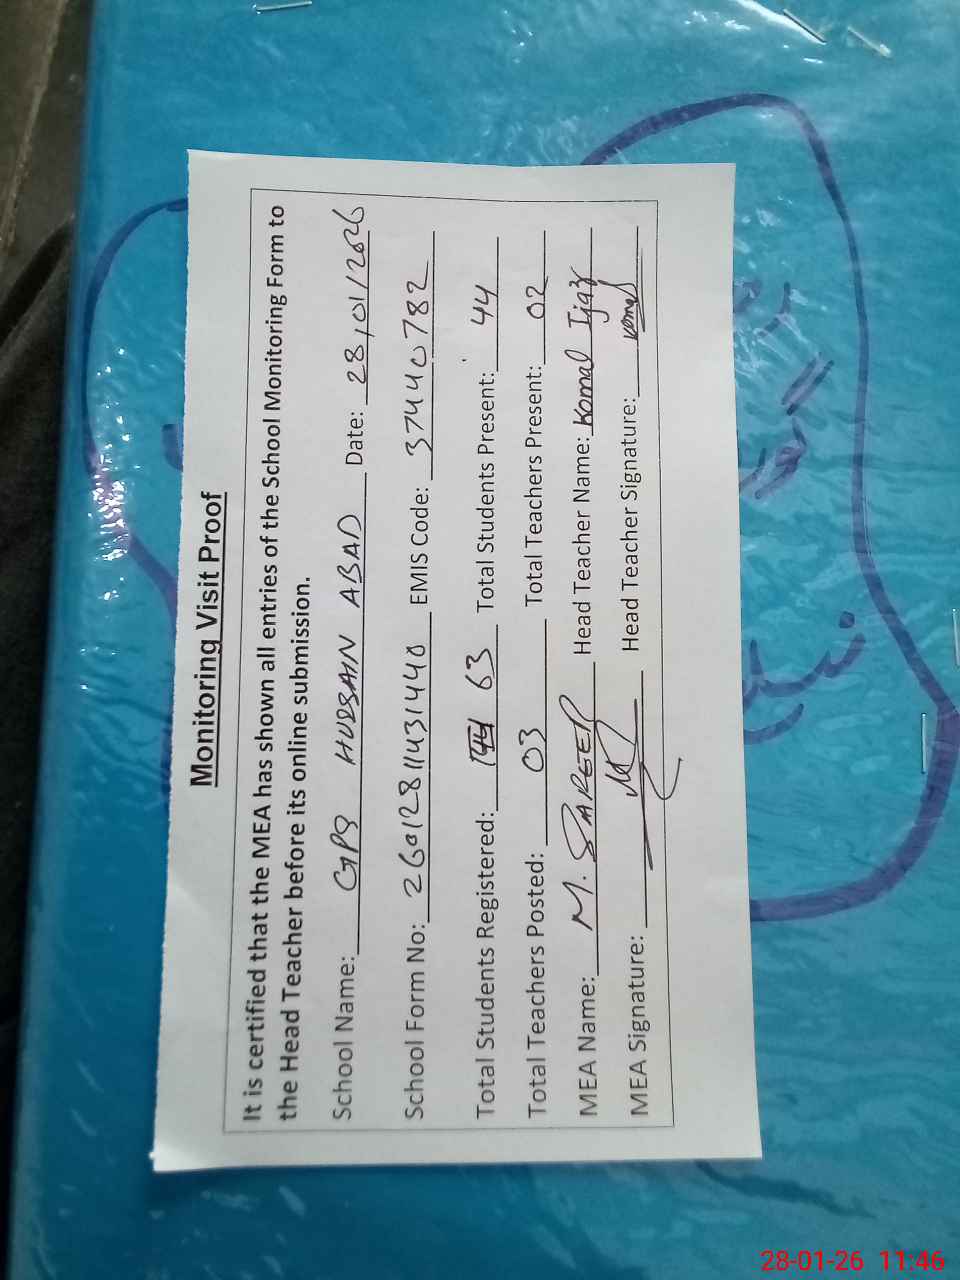 Monitoring Visit Proof
It is certified that the MEA has shown all entries of the School Monitoring Form to
the Head Teacher before its online submission.
School Name: GPS HUSSAIN ABAD Date: 28/01/2026
School Form No: 26012811431440 EMIS Code: 37440782
Total Students Registered: 63 Total Students Present: 44
Total Teachers Posted: 03 Total Teachers Present: 02
MEA Name: M. Head Teacher Name: Komal Ijaz
MEA Signature: Head Teacher Signature: Komal
28-01-26 11:46